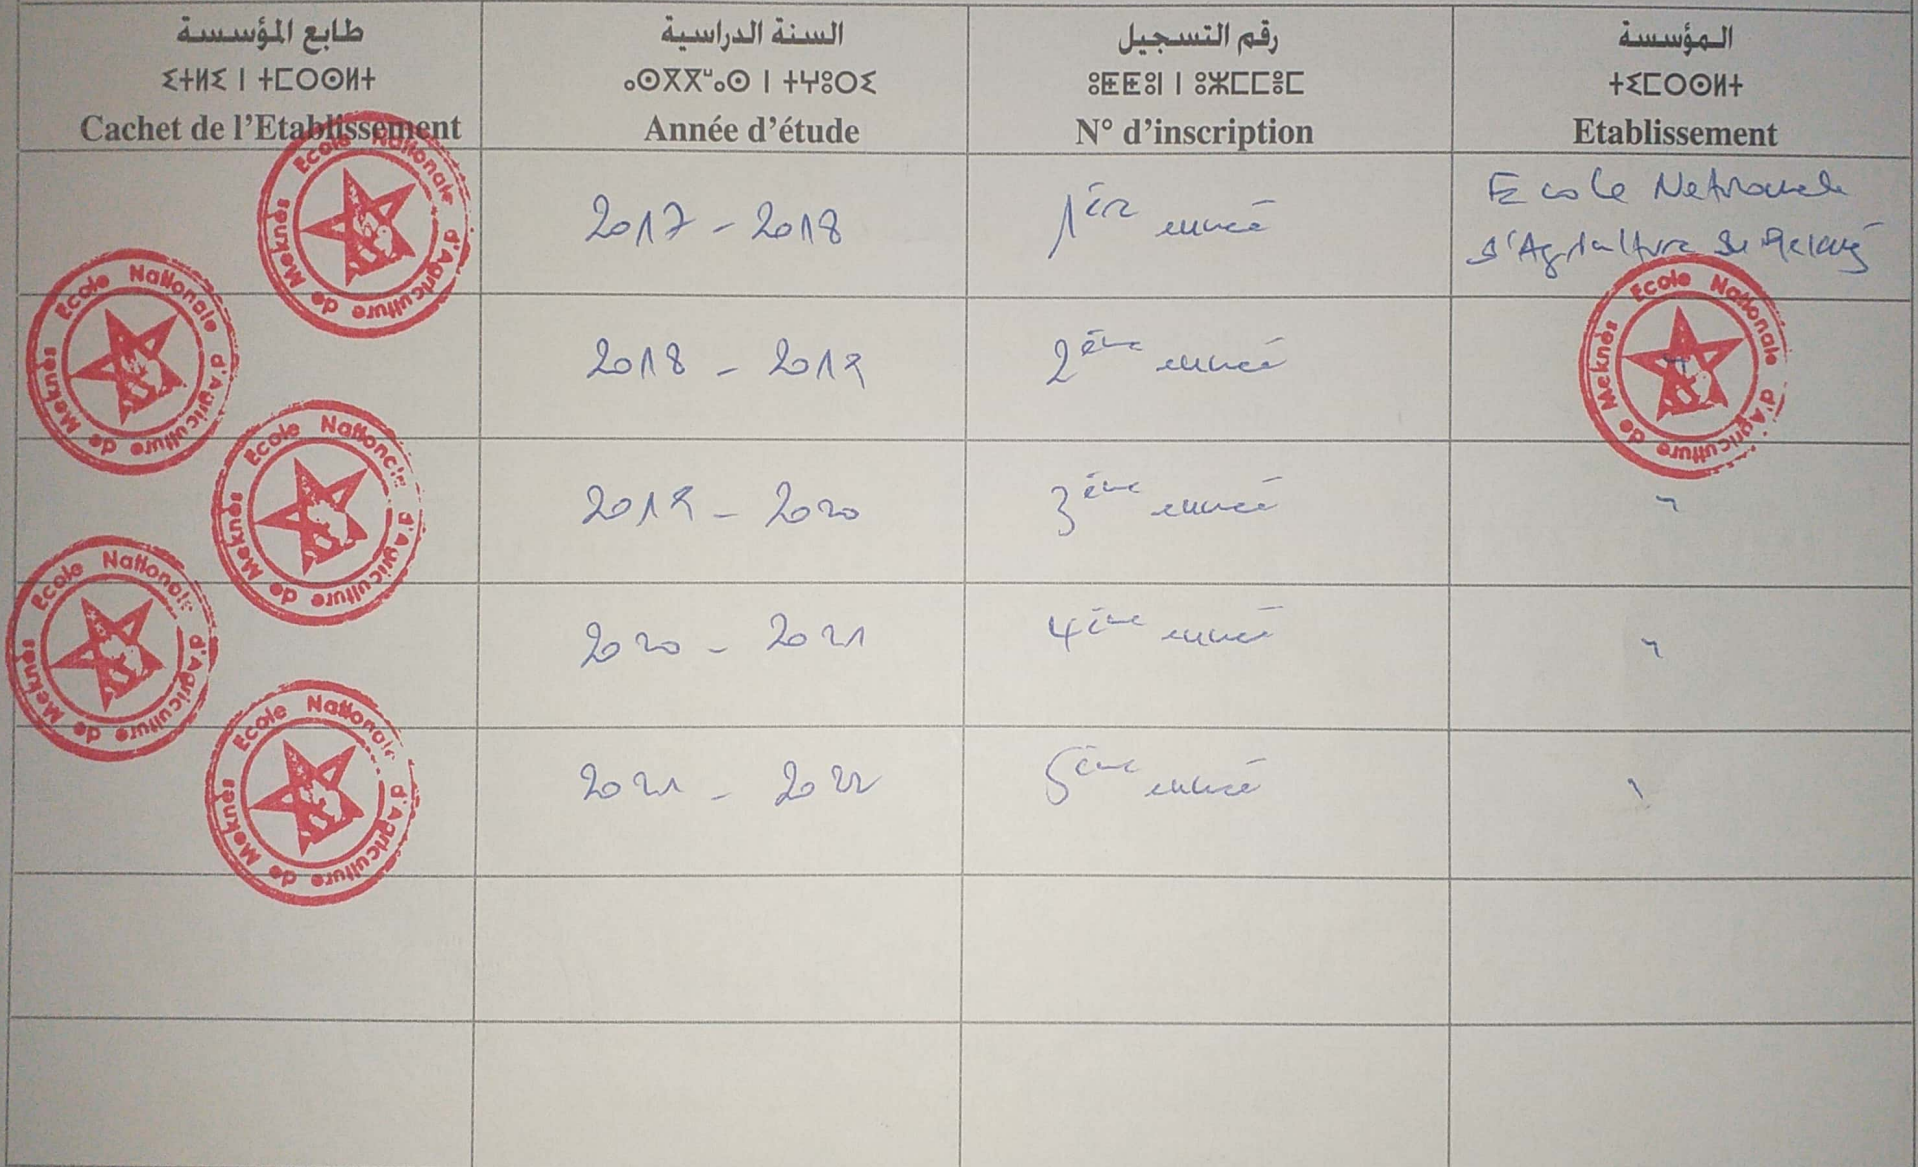 طابع المؤسسة
ⵉⵜⵍⵉ ⵏ ⵜⵎⵔⵙⵍⵜ
Cachet de l'Etablissement
السنة الدراسية
ⴰⵙⴳⴳⵯⴰⵙ ⵏ ⵜⵖⵓⵔⵉ
Année d'étude
رقم التسجيل
ⵓⵟⵟⵓⵏ ⵏ ⵓⵣⵎⵎⵓⵎ
N° d'inscription
المؤسسة
ⵜⵉⵎⵔⵙⵍⵜ
Etablissement
Ecole Nationale d'Agriculture de Meknès
2017 - 2018
1ère année
Ecole Nationale
d'Agriculture de Meknès
Ecole Nationale d'Agriculture de Meknès
2018 - 2019
2ème année
Ecole Nationale d'Agriculture de Meknès
Ecole Nationale d'Agriculture de Meknès
2019 - 2020
3ème année
Ecole Nationale d'Agriculture de Meknès
2020 - 2021
4ème année
Ecole Nationale d'Agriculture de Meknès
2021 - 2022
5ème année